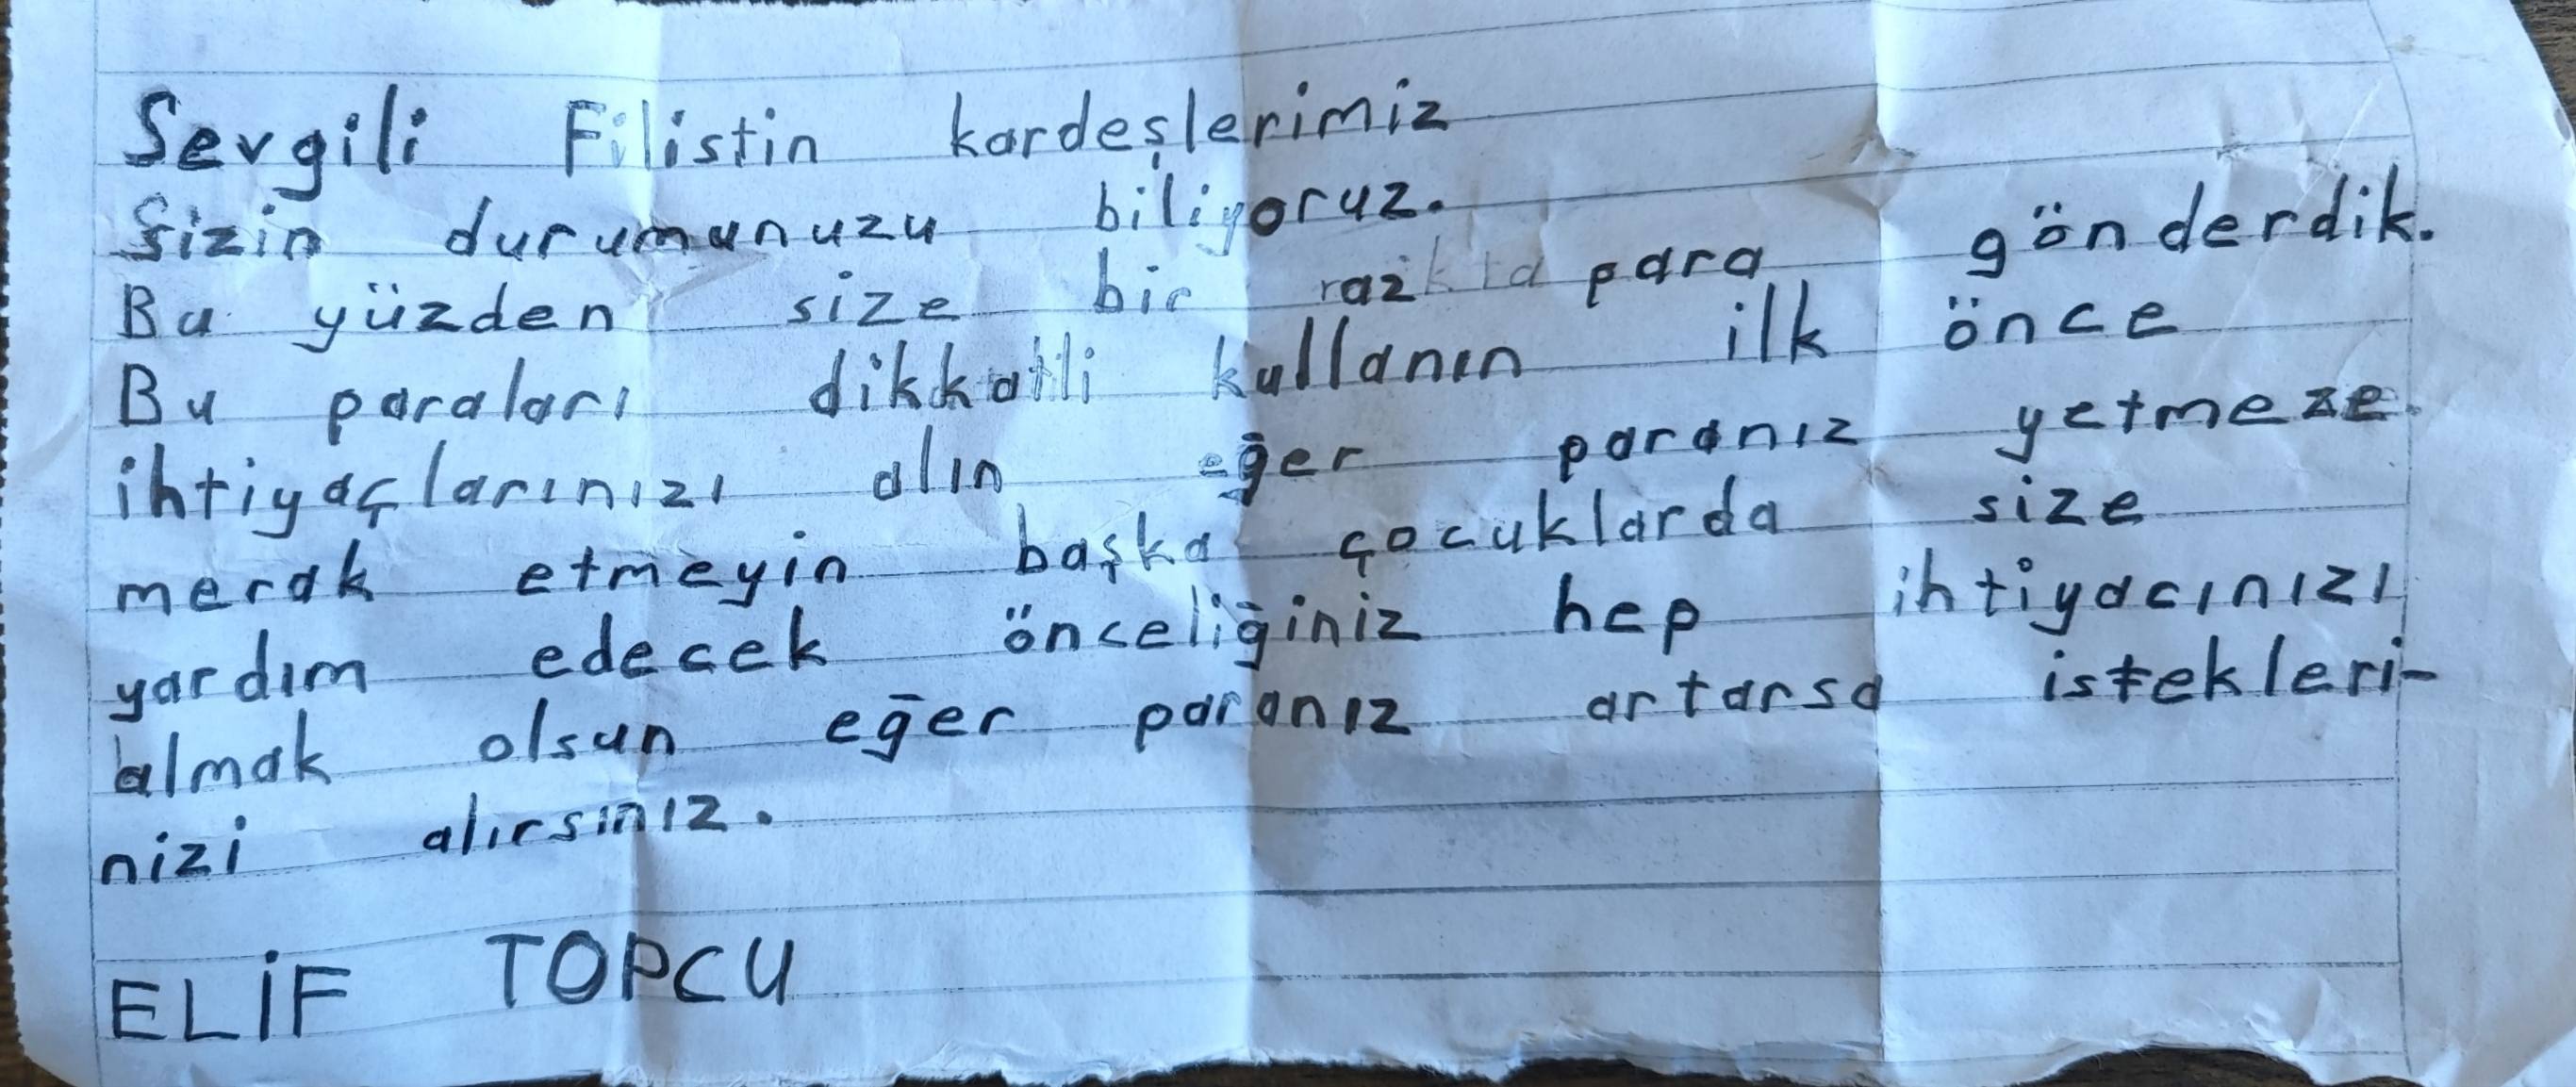 Sevgili Filistin kardeşlerimiz
Sizin durumunuzu biliyoruz.
Bu yüzden size bir para gönderdik.
Bu paraları dikkatli kullanın ilk önce
ihtiyaçlarınızı alın eğer paranız yetmeze
merak etmeyin başka çocuklarda size
yardım edecek önceliğiniz hep ihtiyacınızı
almak olsun eğer paranız artarsa istekleri-
nizi alırsınız.
ELİF TOPCU